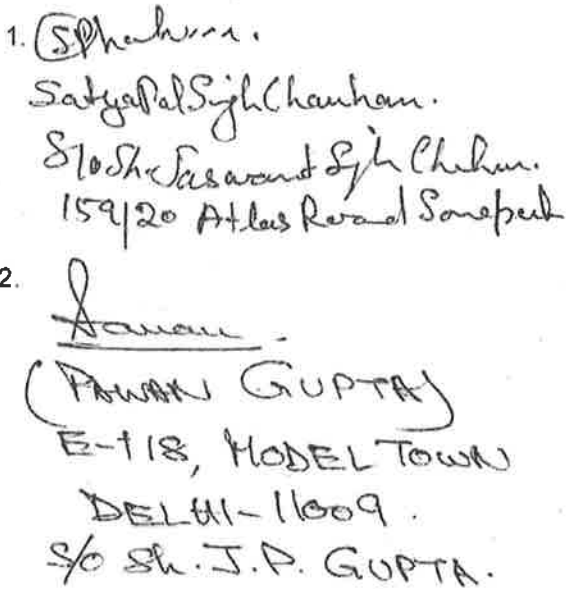 1. SPhahum.
SatyaPalSinghChauhan.
S/o Sh. Jaswant Singh Chauhan.
159/20 Atlas Road Sonepat
2.
(PAWAN GUPTA)
E-118, MODEL TOWN
DELHI-11009.
S/o Sh. J.P. GUPTA.